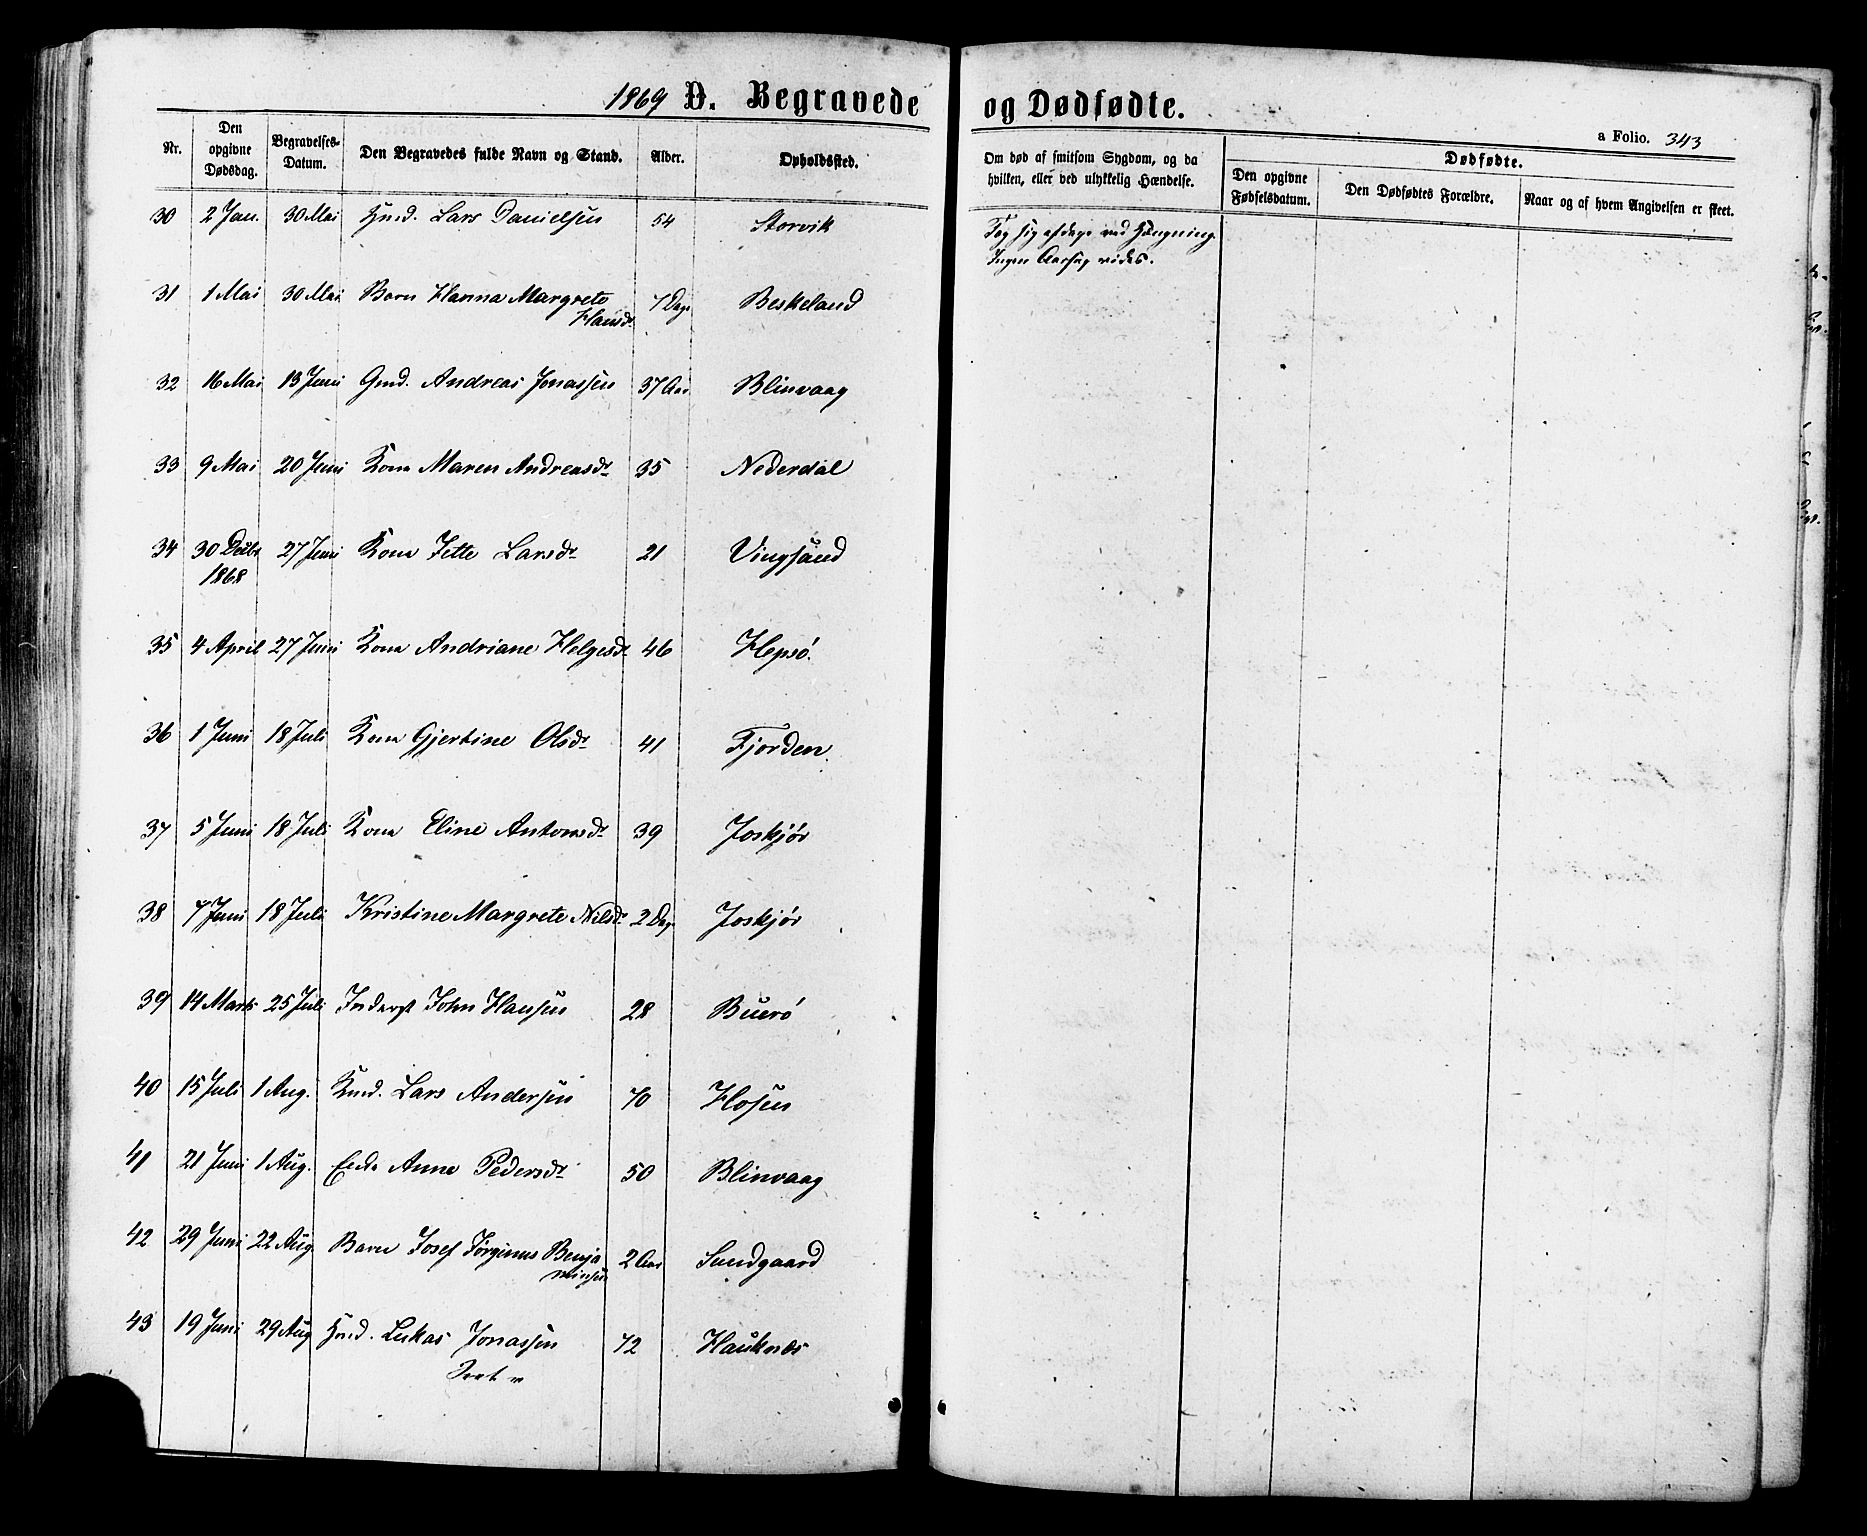 1869 D. Begravede og Dødfødte.
a Folio. 343
Nr. Den opgivne Dødsdag. Begravelses-Datum. Den Begravedes fulde Navn og Stand. Alder. Opholdssted. Om død af smitsom Sygdom, og da hvilken, eller ved ulykkelig Hændelse. Dødfødte. Den opgivne Fødselsdatum. Den Dødfødtes Forældre. Naar og af hvem Angivelsen er skeet.
30 2 Jan. 30 Mai Hmd. Lars Danielsen 54 Storvik Tog sig afdage ved Hængning.
Ingen Aarsag vides.
31 1 Mai 30 Mai Barn Hanna Margrete 7 Dage Beskeland
Hansdr
32 16 Mai 13 Juni Gmd. Andreas Jonassen 37 Aar Blinvaag
33 9 Mai 20 Juni Kone Maren Andreasdr 35 Nederdal
34 30 Decbr 27 Juni Kone Jette Larsdr 21 Vingsand
1868
35 4 April 27 Juni Kone Andriane Helgesdr 46 Hepsø.
36 1 Juni 18 Juli Kone Gjertine Olsdr 41 Fjorden.
37 5 Juni 18 Juli Kone Eline Antonsdr 39 Joskjør
38 7 Juni 18 Juli Kristine Margrete Nilsdr 2 Dage Joskjør
39 14 Marts 25 Juli Inderst John Hansen 28 Buerø
40 15 Juli 1 Aug. Kmd. Lars Andersen 70 Hosen
41 21 Juni 1 Aug. Enke Anne Pedersdr 50 Blinvaag
42 29 Juni 22 Aug. Barn Josef Jørginus Benja 2 Aar Sundgaard
minsen
43 19 Juni 29 Aug Hmd. Lukas Jonassen 72 Hauknes